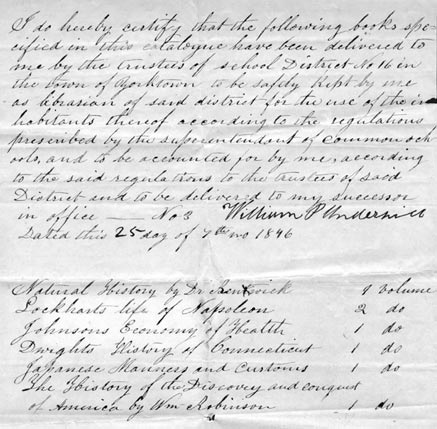 I do hereby certify that the following books spe-
cified in this catalogue have been delivered to
me by the trustees of school District No 16 in
the town of Yorktown to be safely kept by me
as librarian of said district for the use of the in-
habitants thereof according to the regulations
prescribed by the superintendent of common sch-
ools, and to be accounted for by me, according
to the said regulations to the trustees of said
District and to be delivered to my successor
in office — No 3 William P Underhill
Dated this 25 day of 7th mo 1846
Natural History by Dr Renwick 1 volume
Lockharts life of Napoleon 2 do
Johnsons Economy of Health 1 do
Dwights History of Connecticut 1 do
Japanese Manners and Customs 1 do
The History of the Discovery and conquest
of America by Wm Robinson 1 do